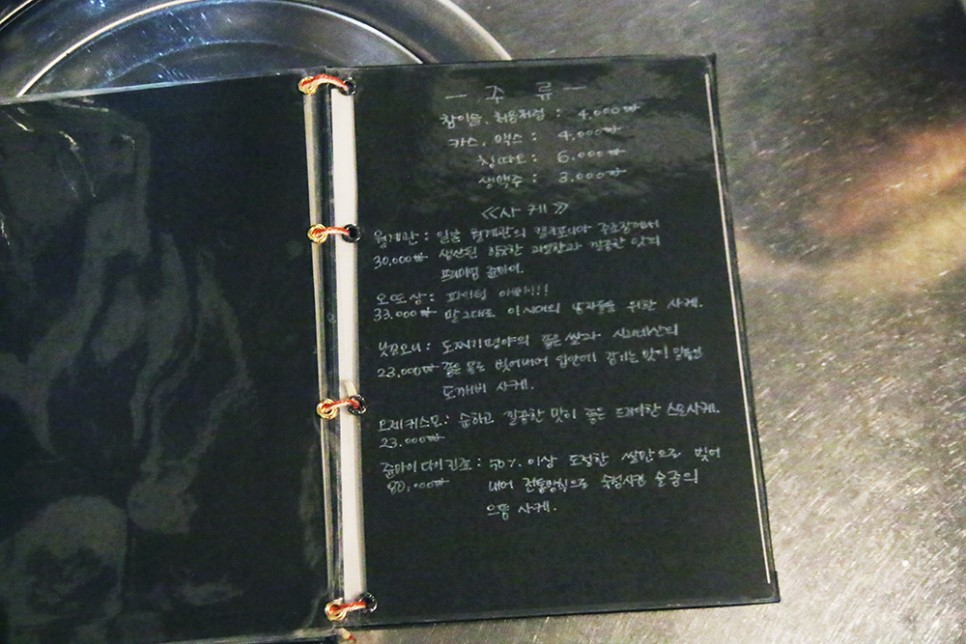 - 주 류 -
참이슬, 처음처럼 : 4,000원
카스, 맥스 : 4,000원
칭따오 : 6,000원
생맥주 : 3,000원
《사 케》
월계관 : 일본 월계관의 캘리포니아 주조장에서
30,000원 생산된 향긋한 과일향과 깔끔한 맛의
프리미엄 준마이.
오또상 : 파이팅 아빠!!!
33,000원 말그대로 이시대의 남자들을 위한 사케.
낫쵸오니 : 도찌기평야의 좋은 쌀과
23,000원 좋은 물로 빚어내어 입안에 감기는 맛이 일품인
도깨비 사케.
오제키스모 : 순하고 깔끔한 맛이 좋은 드라이한 스모사케.
23.000원
준마이 다이긴죠 : 50% 이상 도정한 쌀만으로 빚어
80,000원 내어 전통방식으로 숙성시킨 술중의
으뜸 사케.